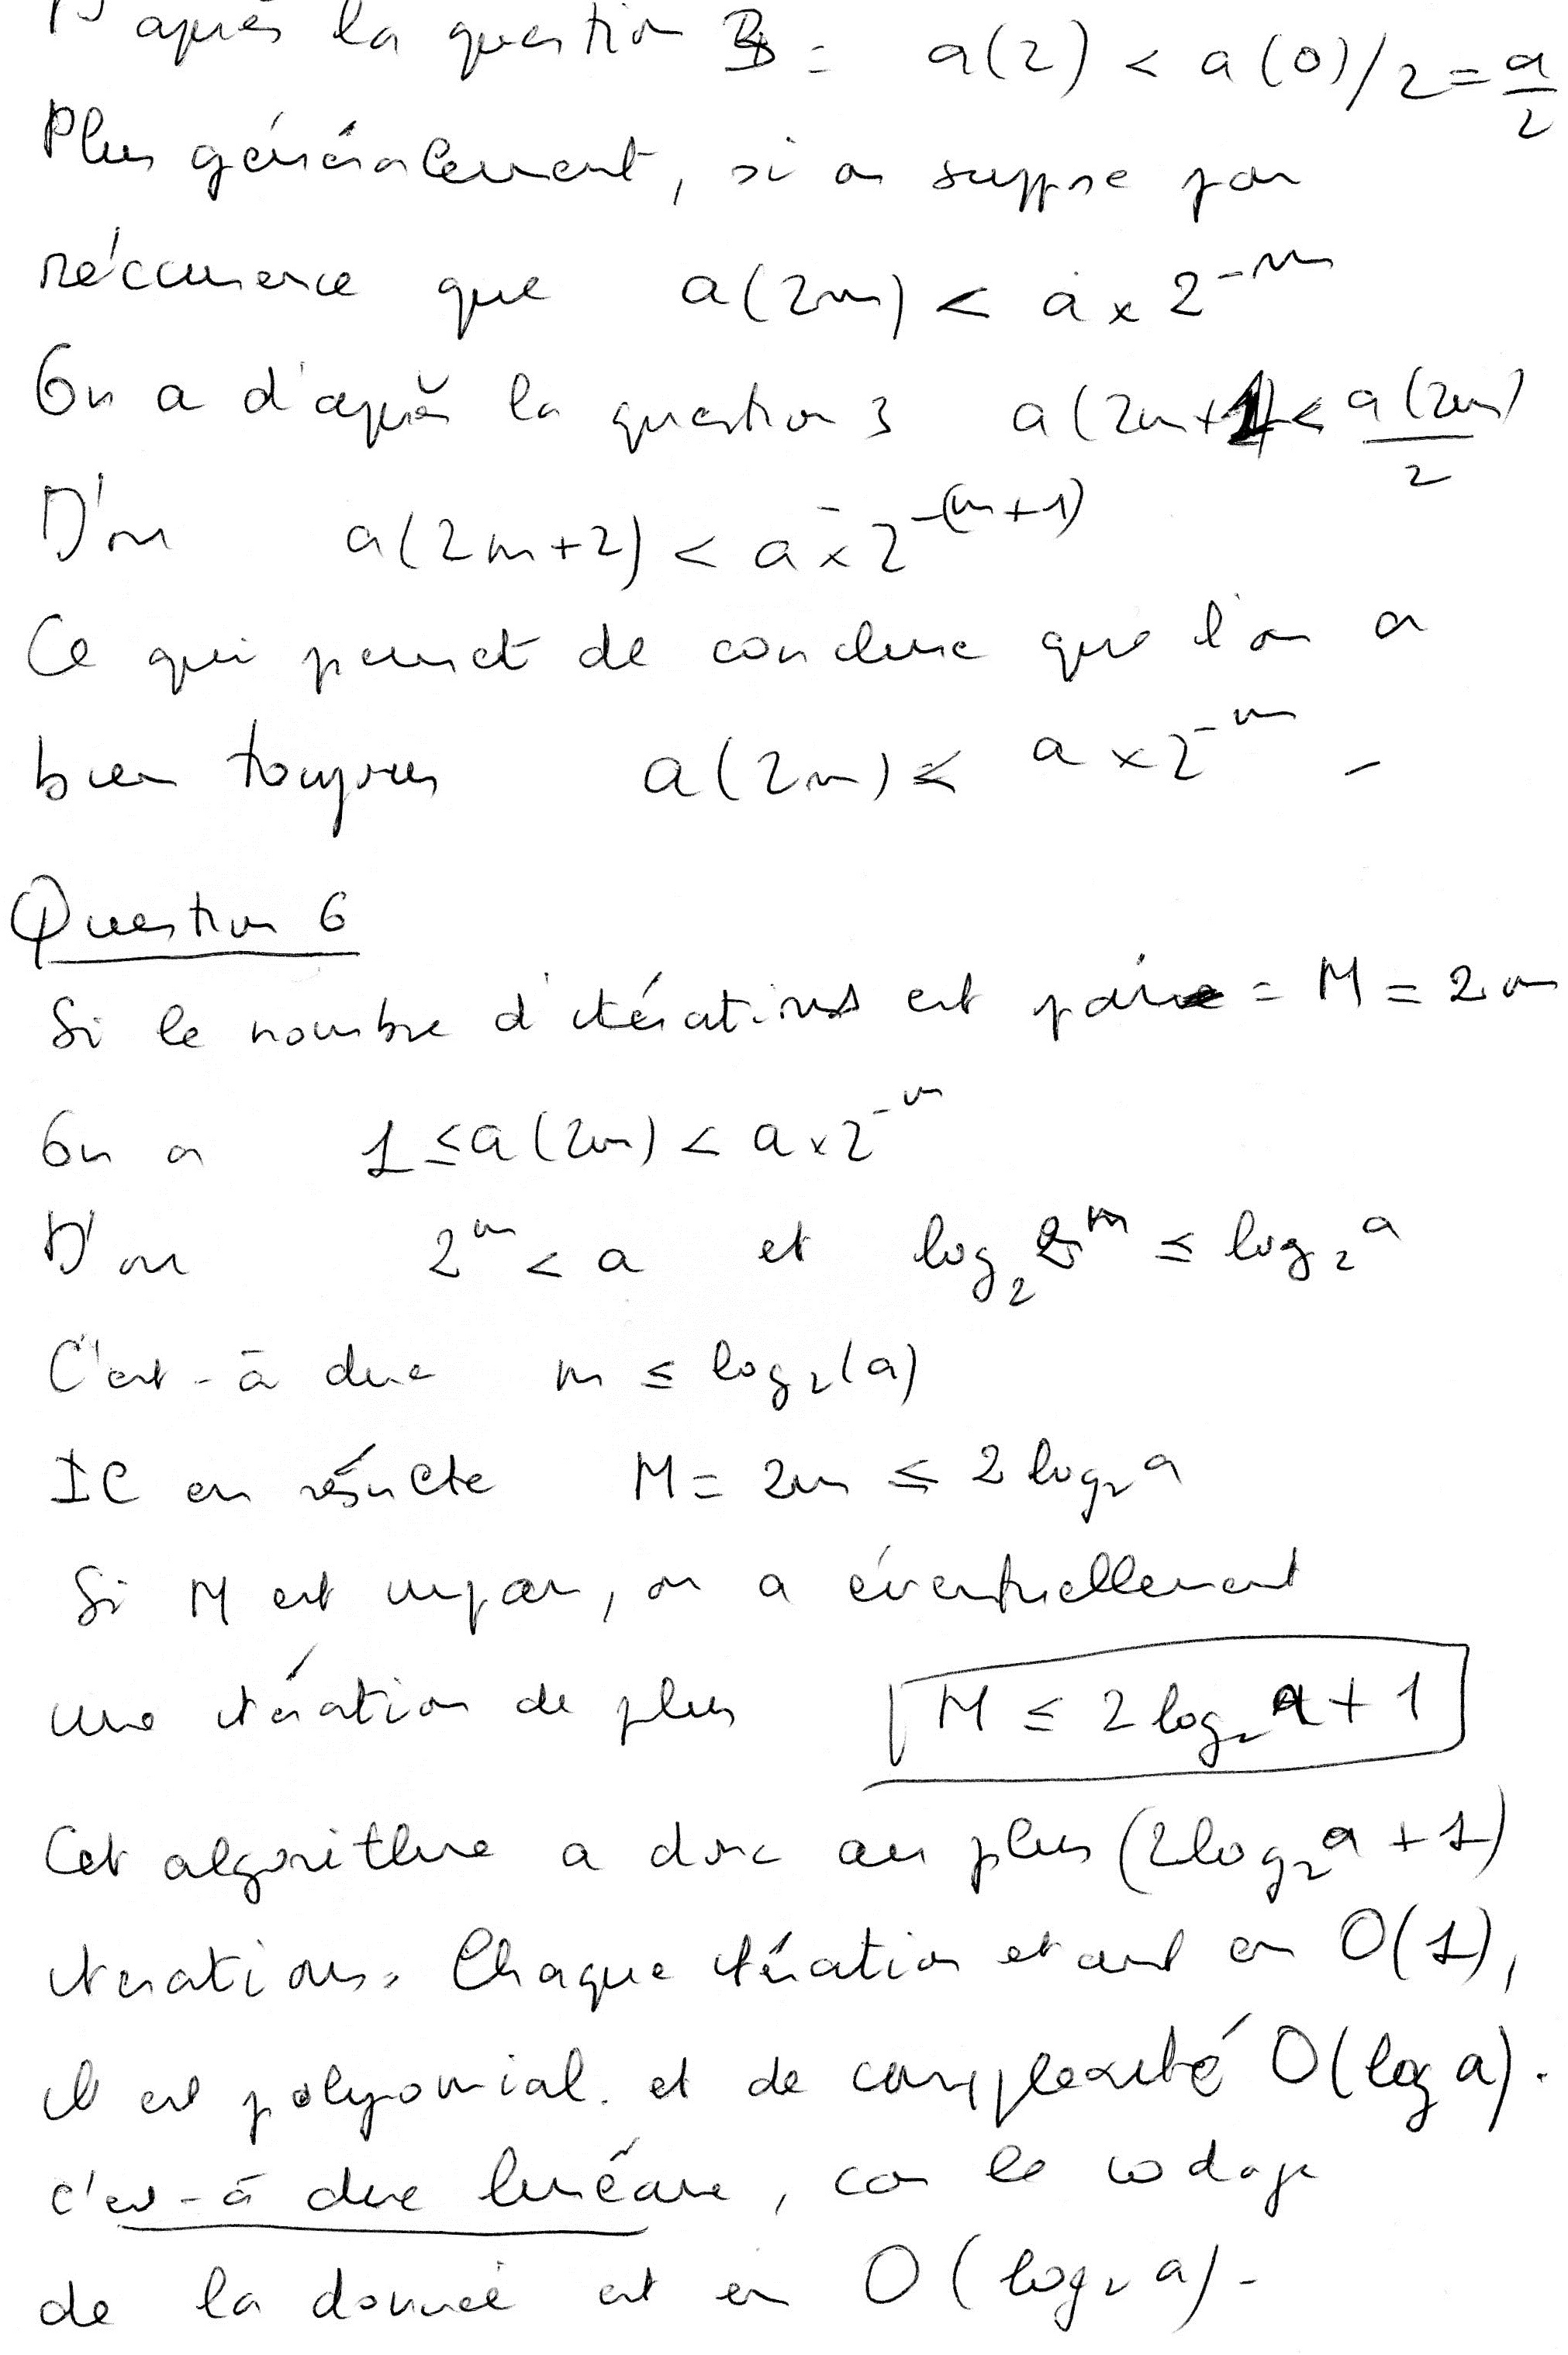 D'après la question 3 : a(2) < a(0)/2 = a/2
Plus généralement, si on suppose par
réccurence que a(2m) < a × 2^-m
On a d'après la question 3 a(2m+1) < a(2m)/2
D'où a(2m+2) < a × 2^-(m+1)
Ce qui permet de conclure que l'on a
bien toujours a(2m) < a × 2^-m -
Question 6
Si le nombre d'itérations est pair = M = 2m
On a 1 ≤ a(2m) < a × 2^-m
D'où 2^m < a et log₂ 2^m ≤ log₂ a
C'est-à dire m ≤ log₂(a)
Il en résulte M = 2m ≤ 2 log₂ a
Si M est impair, on a éventuellement
une itération de plus M ≤ 2 log₂ a + 1
Cet algorithme a donc au plus (2log₂ a + 1)
iterations. Chaque itération etant en O(1),
il est polynomial. et de complexité O(log a).
c'est-à dire linéaire, car le codage
de la donnée est en O(log₂ a) -